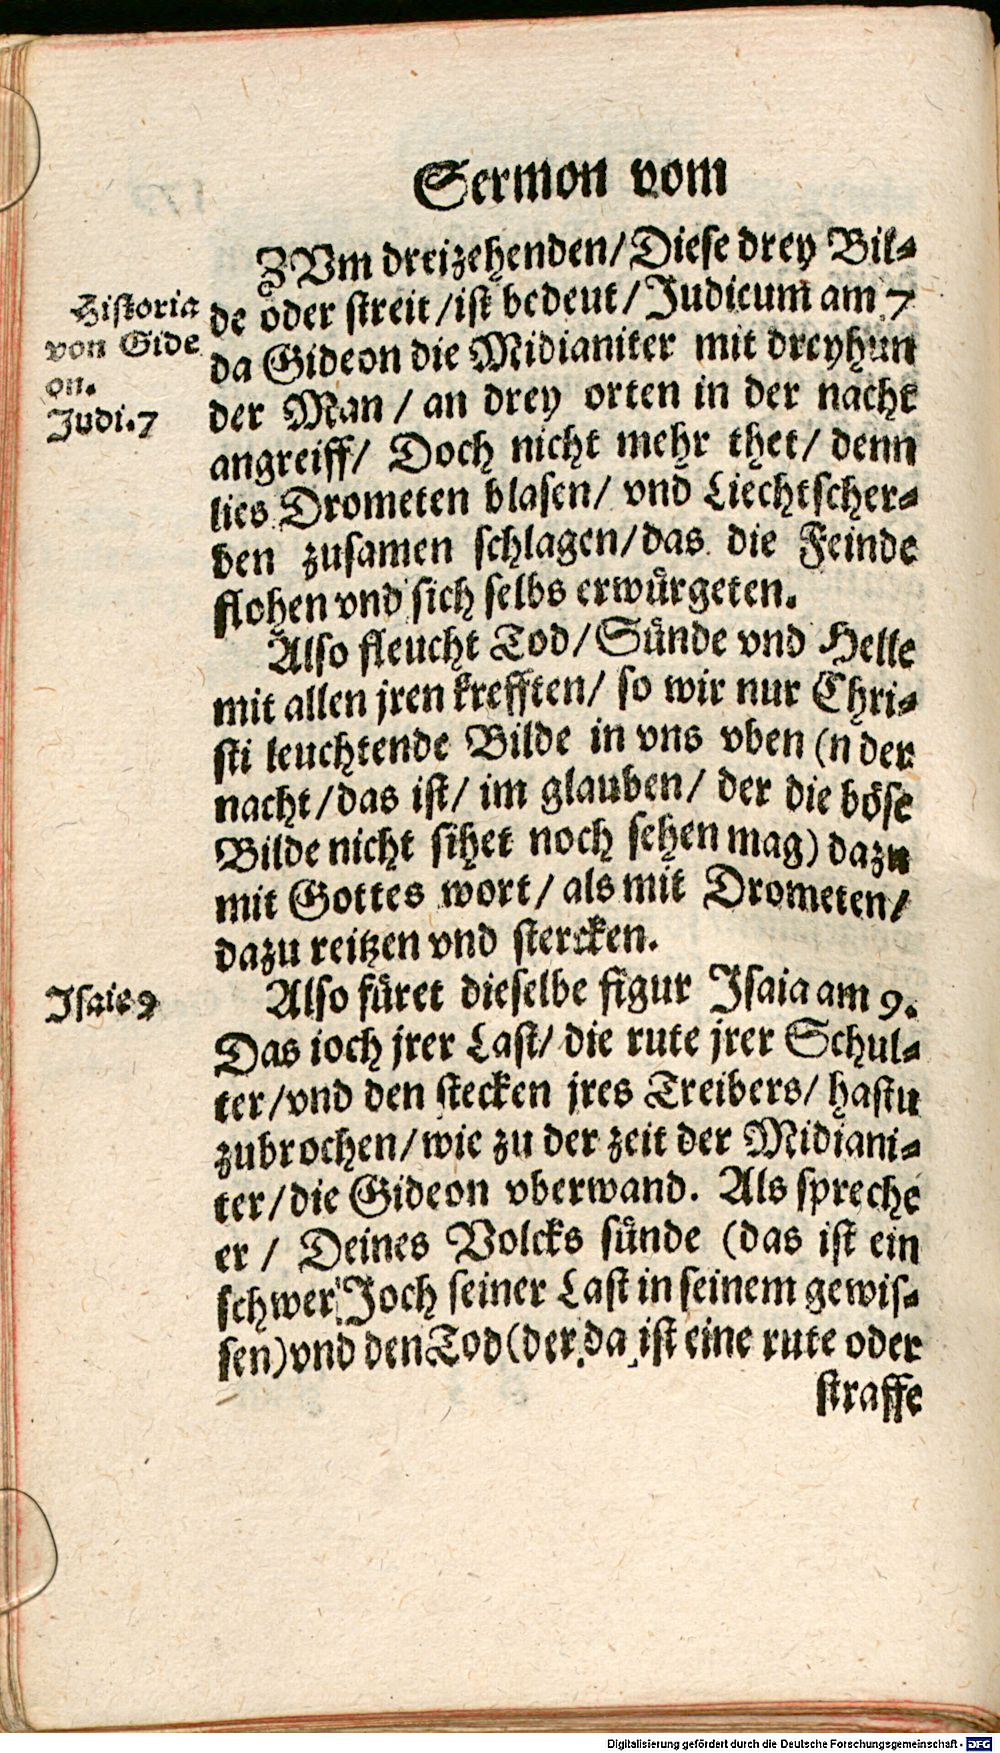 Sermon vom
ZVm dreizehenden/Diese drey Bil⸗
de oder streit/ist bedeut/Judicum am 7
da Gideon die Midianiter mit dreyhun
der Man/an drey orten in der nacht
angreiff/ Doch nicht mehr thet/ denn
lies Drometen blasen/ vnd Liechtscher⸗
ben zusamen schlagen/das die Feinde
flohen vnd sich selbs erwürgeten.
Historia
von Gide
on.
Judi.7
Also fleucht Tod/Sünde vnd Helle
mit allen jren krefften/ so wir nur Chri⸗
sti leuchtende Bilde in vns vben (n der
nacht/das ist/ im glauben/ der die böse
Bilde nicht sihet noch sehen mag) dazu
mit Gottes wort/ als mit Drometen/
dazu reitzen vnd stercken.
Isaie 9
Also füret dieselbe figur Isaia am 9.
Das ioch jrer Last/ die rute jrer Schul⸗
ter/vnd den stecken jres Treibers/ hastu
zubrochen/wie zu der zeit der Midiani⸗
ter/die Gideon vberwand. Als spreche
er/ Deines Volcks sünde (das ist ein
schwer Joch seiner Last in seinem gewis⸗
sen)vnd den Tod(der da ist eine rute oder
straffe
Digitalisierung gefördert durch die Deutsche Forschungsgemeinschaft - DFG